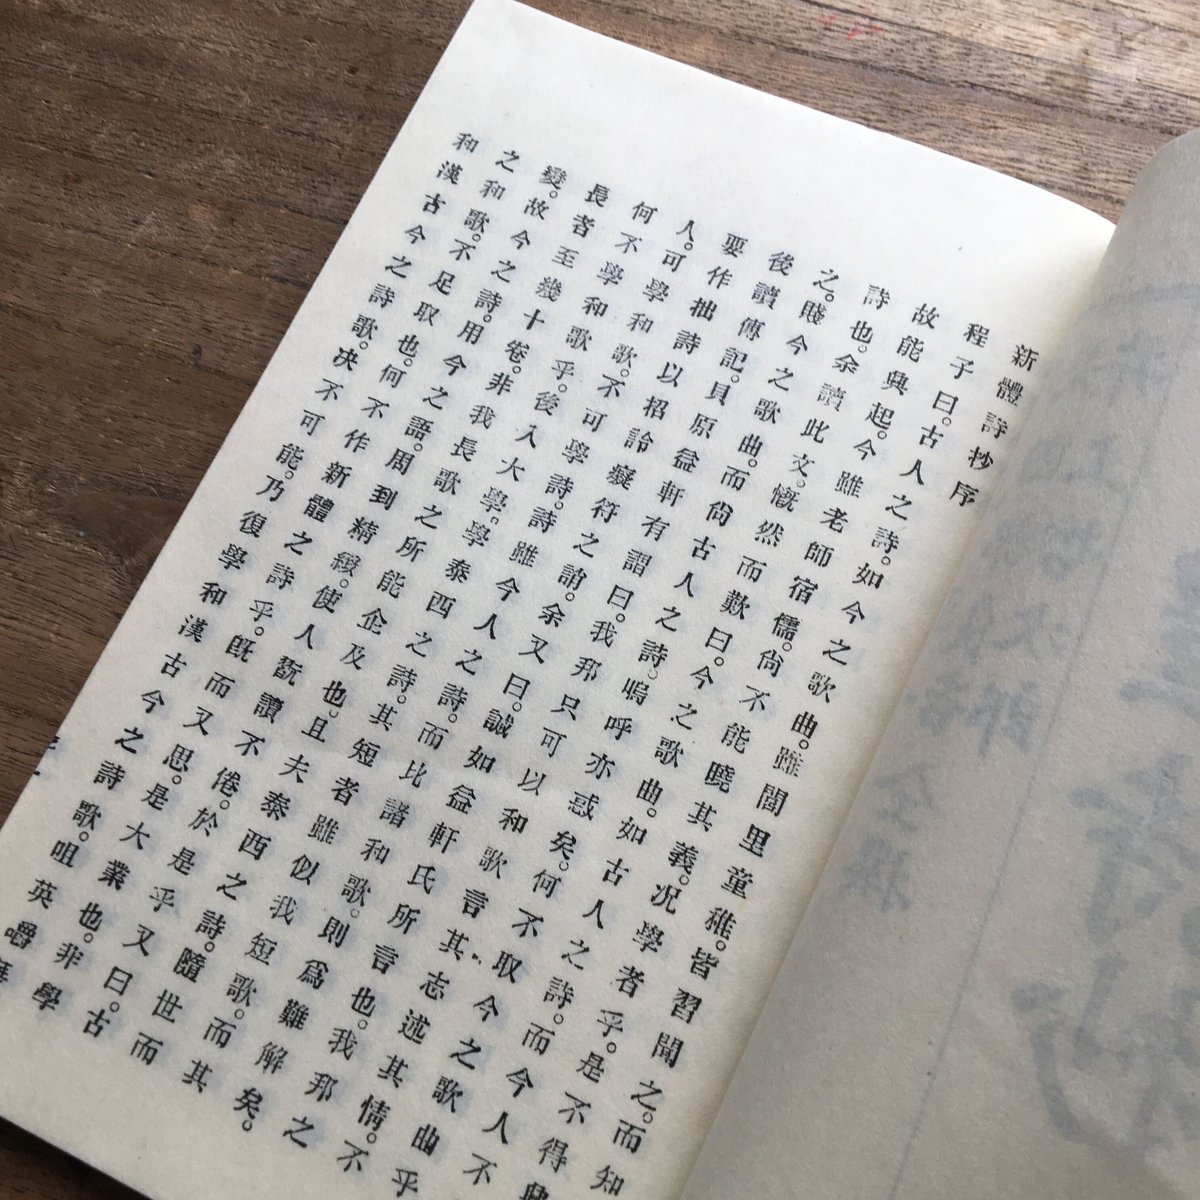 新體詩抄序
程子曰。古人之詩。如今之歌曲。雖閭里童稚。皆習聞之。而知
故能興起。今雖老師宿儒。尚不能曉其義。况學者乎。是不得興
詩也。余讀此文。慨然而歎曰。今之歌曲。如古人之詩。而今人不
之。賤今之歌曲。而尚古人之詩。嗚呼亦惑矣。何不取今之歌曲乎
後讀傳記。貝原益軒有謂曰。我邦只可以和歌言其志述其情。不
要作拙詩以招詅癡符之誚。余又曰。誠如益軒氏所言也。我邦之
人。可學和歌。不可學詩。詩雖今人之詩。而比諸和歌。則爲難解矣。
何不學和歌乎。後入大學。學泰西之詩。其短者雖似我短歌。而其
長者至幾十卷。非我長歌之所能企及也。且夫泰西之詩。隨世而
變。故今之詩。用今之語。周到精緻。使人翫讀不倦。於是乎又曰。古
之和歌。不足取也。何不作新體之詩乎。既而又思。是大業也。非學
和漢古今之詩歌。决不可能。乃復學和漢古今之詩歌。咀英嚼華